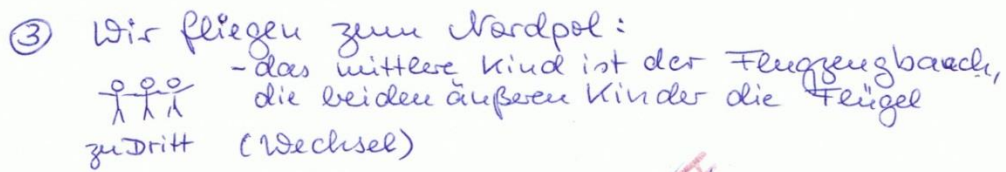 ③ Wir fliegen zum Nordpol:
- das mittlere Kind ist der Flugzeugbauch,
die beiden äußeren Kinder die Flügel
zu Dritt (Wechsel)